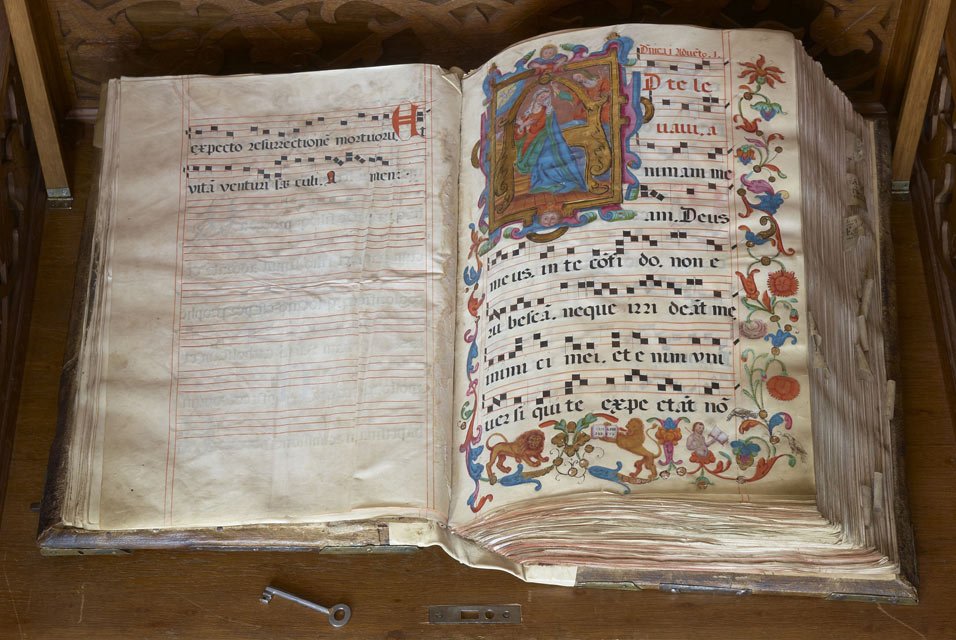 Et
expecto resurrectionē mortuorū
vitā venturi sæ culi. A men:
Dnica i Advētꝰ. I.
D te le
uaui, a
nimam me
am. Deus
meus, in te cōfi do, non e
ru bescā. neque irri deāt me
inimi ci mei. et e nim vni
uer si qui te expe ctāt nō